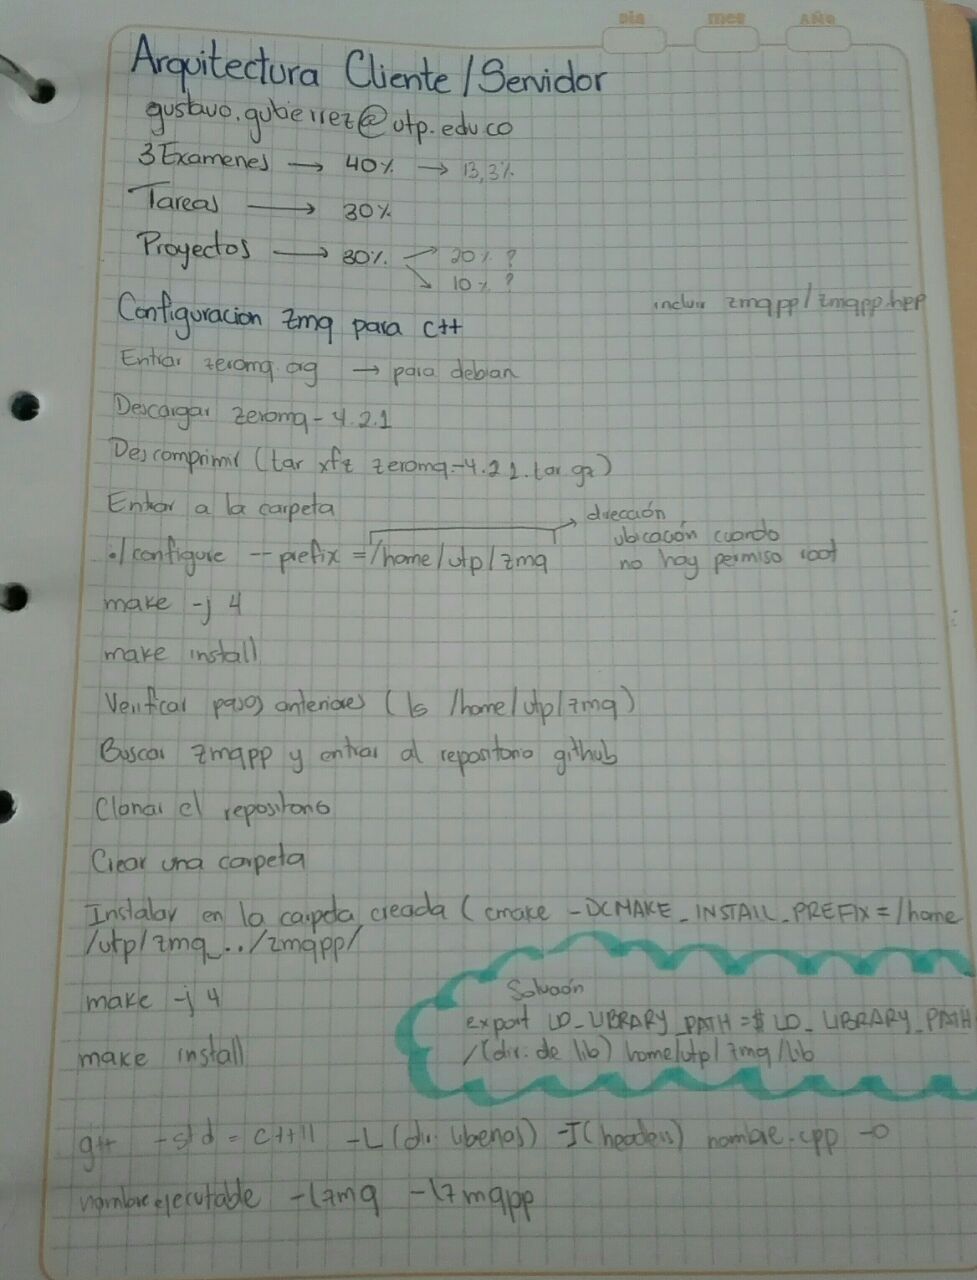 Dia mes AÑO
Arquitectura Cliente/Servidor
gustavo.gutierrez@utp.edu.co
3 Examenes → 40% → 13,3%
Tareas → 30%
Proyectos → 30% → 20% ?
↘ 10% ?
incluir zmqpp/zmqpp.hpp
Configuracion zmq para c++
Entrar zeromq.org → para debian
Descargar zeromq-4.2.1
Descomprimir (tar xfz zeromq-4.2.1.tar.gz)
Entrar a la carpeta
./configure --prefix=/home/utp/zmq → dirección ubicación cuando no hay permiso root
make -j 4
make install
Verificar pasos anteriores (ls /home/utp/zmq)
Buscar zmqpp y entrar al repositorio github
Clonar el repositorio
Crear una carpeta
Instalar en la carpeta creada (cmake -DCMAKE_INSTALL_PREFIX=/home
/utp/zmq ../zmqpp/
make -j 4
make install
Solución
export LD_LIBRARY_PATH=$LD_LIBRARY_PATH
/(dir. de lib) home/utp/zmq/lib
g++ -std=c++11 -L(dir. librerias) -I(headers) nombre.cpp -o
nombre ejecutable -lzmq -lzmqpp